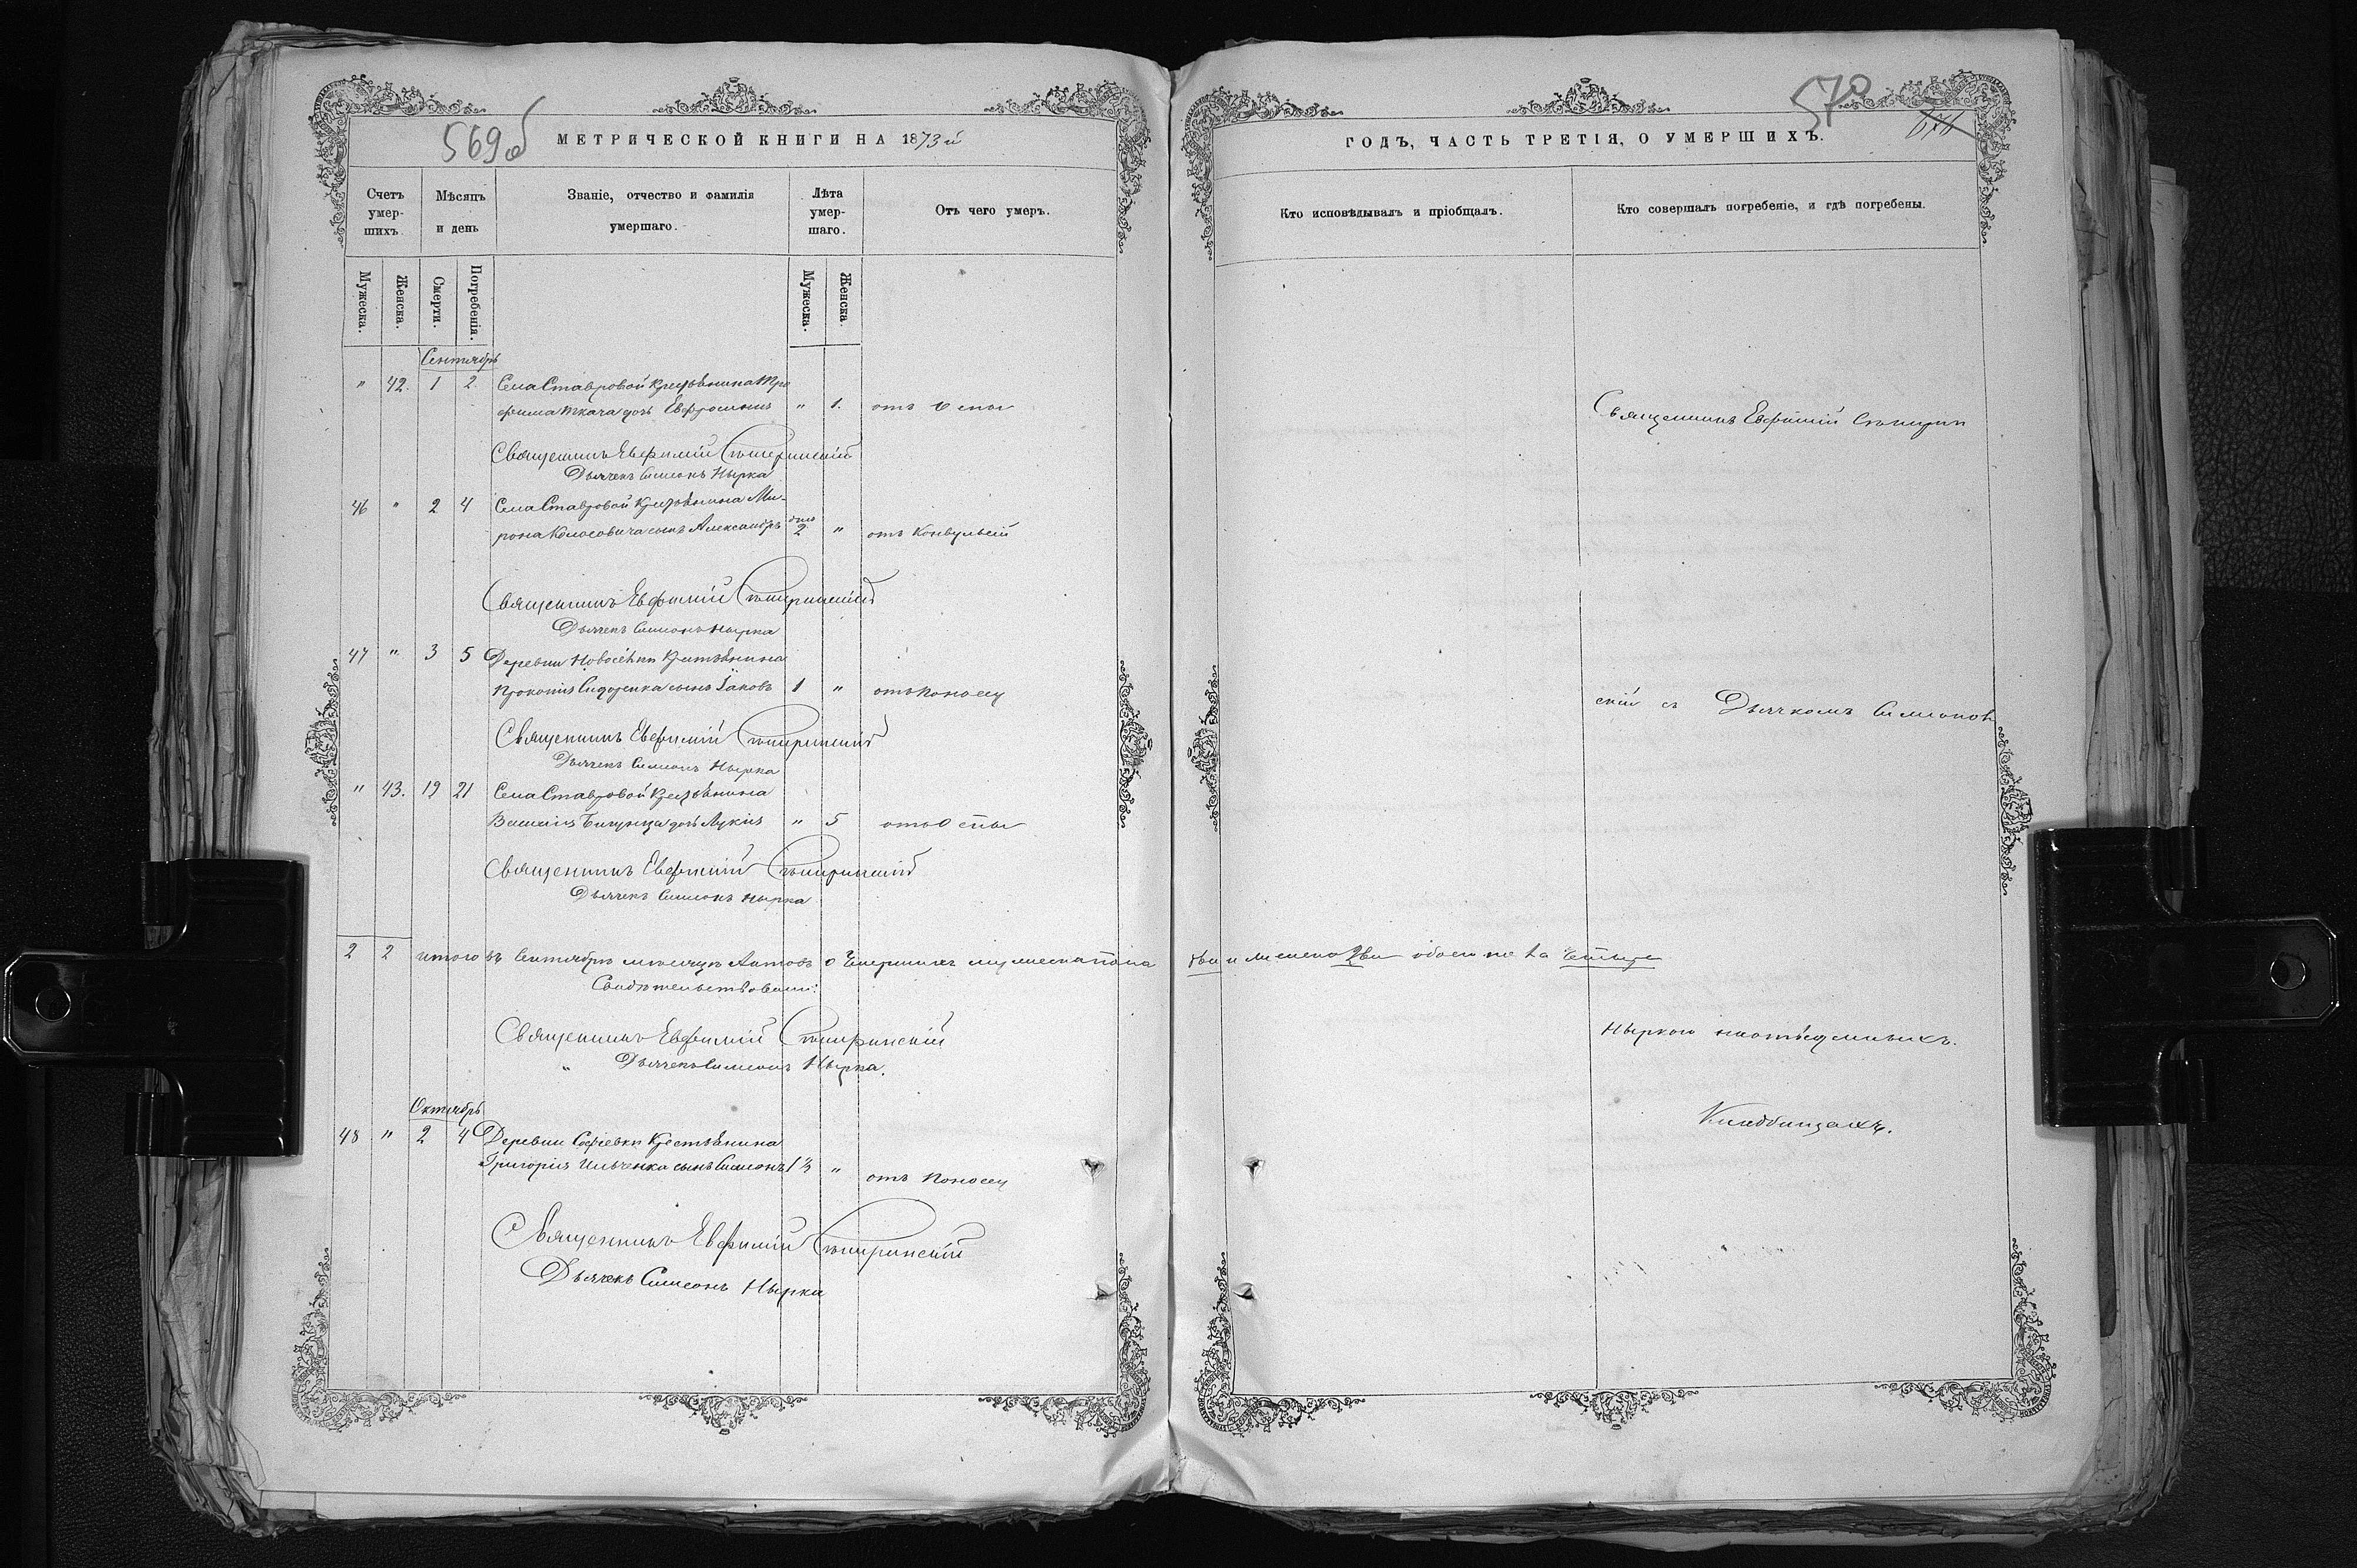 569об
МЕТРИЧЕСКОЙ КНИГИ НА 1873й
Счетъ умер- шихъ.
Мѣсяцъ и день
Званіе, отчество и фамилія умершаго.
Лѣта умер- шаго.
Отъ чего умеръ.
Мужеска.
Женска.
Смерти.
Погребенія.
Мужеска.
Женска.
Сентябрь
" 42. 1 2. Села Ставровой крестьянина Тро
фима Ткача дочь Евфросинія " 1. отъ Оспы
Священникъ Евфимій
Дьячекъ Симеонъ Нырка
46 " 2 4 Села Ставровой Крестьянина Ми-
рона Колосовича сынъ Александръ дня 2 " отъ Конвульсій
Священникъ Евфимій
Дьячекъ Симеонъ Нырка
47 " 3 5 Деревни Новосёлки Крестьянина
Прокопія Сидоренка сынъ Іаковъ 1 " отъ Поносу
Священникъ Евфимій
Дьячекъ Симеонъ Нырка
" 43. 19 21 Села Ставровой Крестьянина
Василія дочь Лукія " 5 отъ Оспы
Священникъ Евфимій
Дьячекъ Симеонъ Нырка
2 2 итого въ Сентябрѣ мѣсяцѣ Актовъ о Умершихъ мужеска пола
Свидѣтельствовали:
Священникъ Евфимій
" Дьячекъ Симеонъ Нырка.
Октябрь
48 " 2 4 Деревни Софіевки Крестьянина
Григорія Ильченка сынъ Симеонъ 1½ " отъ Поносу
Священникъ Евфимій
Дьячекъ Симеонъ Нырка
570
ГОДЪ, ЧАСТЬ ТРЕТІЯ, О УМЕРШИХЪ.
Кто исповѣдывалъ и пріобщалъ.
Кто совершалъ погребеніе, и гдѣ погребены.
Священникъ Евфимій
скій съ Дьячкомъ Симеоном
два и женска два обоего пола Четыре
Ныркою на
Кладбищахъ.